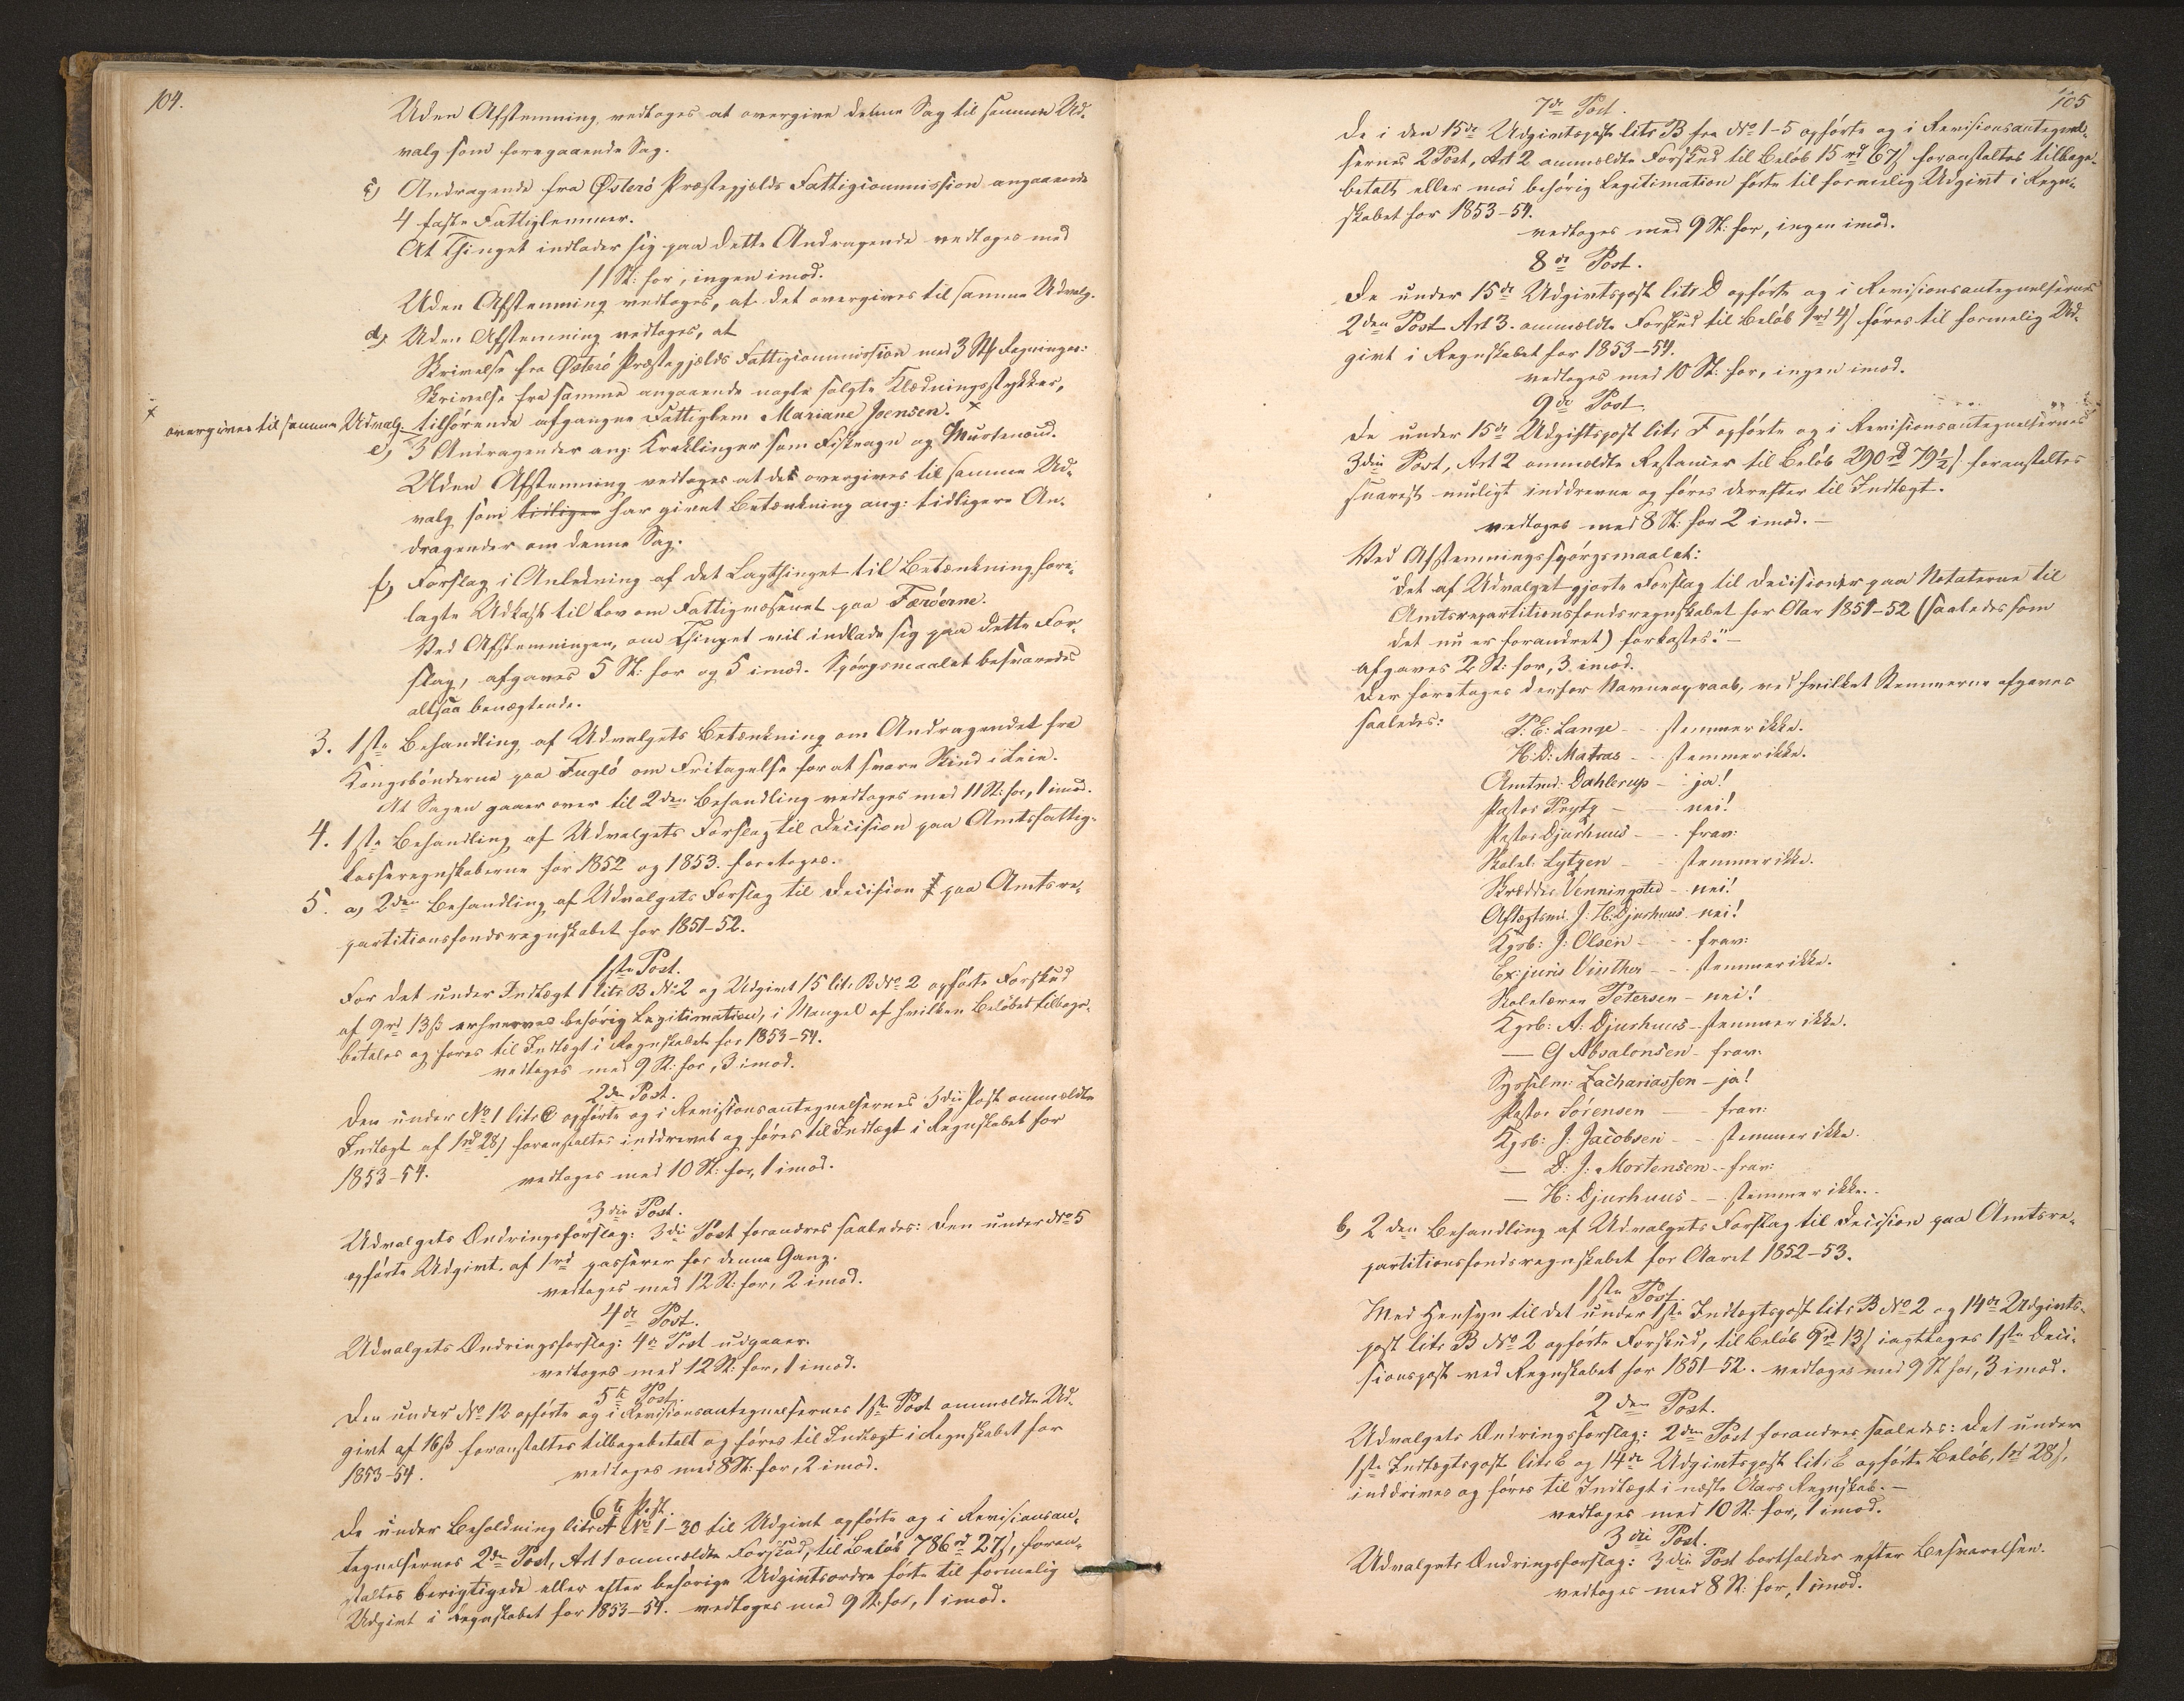 104.
Uden Afstemning, vedtoges at overgive denne Sag til samme Ud-
valg som foregaaende Sag.
c) Andragende fra Østerö Præstegjælds Fattigcommission angaaende
4 faste Fattiglemmer.
At Thinget indlader sig paa dette Andragende vedtoges med
11 St: for, ingen imod.
Uden Afstemning vedtoges, at det overgives til samme Udvalg.
d) Uden Afstemning vedtoges, at
Skrivelse fra Østerö Præstegjælds Fattigcommission med 3 Stk Regninger:
Skrivelse fra samme angaaende nogle solgte Klædningsstykker,
tilhørende afgangne Fattiglem Mariane Joensen. x
x overgives til samme Udvalg.
e) 3 Andragender ang: Kræklinger som Fiskeagn og
Uden Afstemning vedtoges at det overgives til samme Ud-
valg som tidligere har givet Betænkning ang: tidligere An-
dragender om denne Sag.
f) Forslag i Anledning af det Lagthinget til Betænkning fore-
lagte Udkast til Lov om Fattigvæsenet paa Færöerne.
Ved Afstemningen, om Thinget vil indlade sig paa dette For-
slag, afgaves 5 St: for og 5 imod. Spörgsmaalet besvaredes
altsaa benægtende.
3. 1ste Behandling af Udvalgets Betænkning om Andragendet fra
Kongsbönderne paa Fuglö om Fritagelse for at svare Skind i Leie.
At Sagen gaaer over til 2den Behandling vedtoges med 11 St: for, 1 imod.
4. 1ste Behandling af Udvalgets Forslag til Decision paa Amtsfattig-
kasseregnskaberne for 1852 og 1853. foretoges.
5. a) 2den Behandling af Udvalgets Forslag til Decision paa Amtsre-
partitionsfondsregnskabet for 1851-52.
1ste Post.
For det under Indtægt 1 litr B No 2 og Udgivt 15 litr B No 2 opförte Forskud
af 9rd 13ß erhverves behörig Legitimation, i Mangel af hvilken Beløbet tilbage-
betales og føres til Indtægt i Regnskabet for 1853-54.
vedtoges med 9 St: for, 3 imod.
2den Post.
Den under No 1 litr C opförte og i Revisionsantegnelsernes 3die Post ommeldte
Indtægt af 1rd 28ß foranstaltes inddrevet og föres til Indtægt i Regnskabet for
1853-54. vedtoges med 10 St: for, 1 imod.
3die Post.
Udvalgets Ændringsforslag: 3die Post forandres saaledes: Den under No 5
opförte Udgivt af 1rd passerer for denne Gang.
vedtoges med 12 St: for, 2 imod.
4de Post.
Udvalgets Ændringsforslag: 4de Post udgaaer.
vedtoges med 12 St: for, 1 imod.
5te Post.
Den under No 12 opförte og i Revisionsantegnelsernes 1ste Post ommeldte Ud-
givt af 16ß foranstaltes tilbagebetalt og föres til Indtægt i Regnskabet for
1853-54. vedtoges med 8 St: for, 2 imod.
6te Post.
De under Beholdning litr A No 1-30 til Udgivt opförte og i Revisionsan-
tegnelsernes 2den Post, Art 1 ommeldte Forskud, til Beløb 786rd 27ß, foran-
staltes berigtigede eller efter behørige Udgivtsordre førte til formelig
Udgivt i Regnskabet for 1853-54. vedtoges med 9 St: for, 1 imod.
105
7de Post.
De i den 15de Udgivtspost litr B fra No 1-5 opförte og i Revisionsantegnel-
sernes 2 Post, Art 2 ommeldte Forskud til Beløb 15rd 67ß foranstaltes tilbage-
betalt eller mod behörig Legitimation førte til formelig Udgivt i Regn-
skabet for 1853-54.
vedtoges med 9 St: for, ingen imod.
8de Post.
De under 15de Udgivtspost litr D opförte og i Revisionsantegnelsernes
2den Post Art 3. ommeldte Forskud til Beløb 1rd 4ß føres til formelig Ud-
givt i Regnskabet for 1853-54.
vedtoges med 10 St: for, ingen imod.
9de Post.
De under 15de Udgiftspost litr F opførte og i Revisionsantegnelsernes
3die Post, Art 2 ommeldte Restancer til Beløb 290rd 79½ß foranstaltes
snarest muligt inddrevne og føres derefter til Indtægt.
vedtoges med 8 St: for 2 imod. —
Ved Afstemningsspörgsmaalet:
"Det af Udvalget gjorte Forslag til Decisioner paa Notaterne til
Amtsrepartitionsfondsregnskabet for Aar 1851-52 (saaledes som
det nu er forandret) forkastes." —
afgaves 2 St: for, 3 imod.
Der foretoges derfor Navneopraab, ved hvilket Stemmerne afgaves
saaledes: P. E: Lange - - stemmer ikke.
H: D: Matras - - stemmer ikke.
Amtmd: Dahlerup - ja!
Pastor Prytz - nei!
Pastor Djurhuus - - frav:
Skolel: Lytzen - - stemmer ikke.
Skrædder Venningsted - nei!
Aftægtsm: J: H: Djurhuus nei!
Kgsb: J: Olsen - - frav:
Ex: juris Vinther - - stemmer ikke.
Skolelærer Petersen - nei!
Kgsb: A: Djurhuus - stemmer ikke.
— G Absalonsen - frav:
Sysselm: Zachariassen - ja!
Pastor Sörensen - frav:
Kgsb: J: Jacobsen - - stemmer ikke.
— D: J: Mortensen - - frav:
— H: Djurhuus - - stemmer ikke.
b) 2den Behandling af Udvalgets Forslag til Decision paa Amtsre-
partitionsfondsregnskabet for Aaret 1852-53.
1ste Post.
Med Hensyn til det under 1ste Indtægtspost litr B No 2 og 14de Udgivts-
post litr B No 2 opförte Forskud, til Beløb 9rd 13ß iagttages 1ste Deci-
sionspost ved Regnskabet for 1851-52. vedtoges med 9 St for, 3 imod.
2den Post.
Udvalgets Ændringsforslag: 2den Post forandres saaledes: Det under
1ste Indtægtspost litr C og 14de Udgivtspost litr C opførte Beløb, 1rd 28ß,
inddrives og föres til Indtægt i næste Aars Regnskab. —
vedtoges med 10 St: for, 1 imod.
3die Post.
Udvalgets Ændringsforslag: 3die Post bortfalder efter Besvarelsen.
vedtoges med 8 St: for, 1 imod.